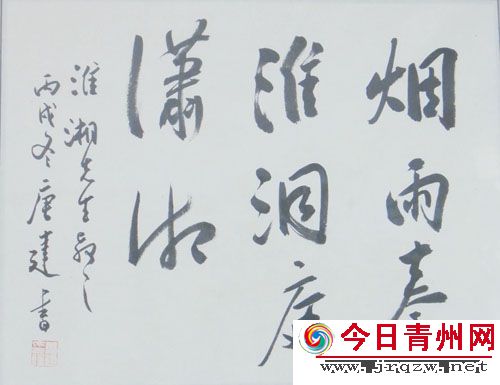 烟雨秦
淮洞庭
潇湘
淮湘先生教之
丙戌冬唐建书
今日青州网
www.jrqzw.net